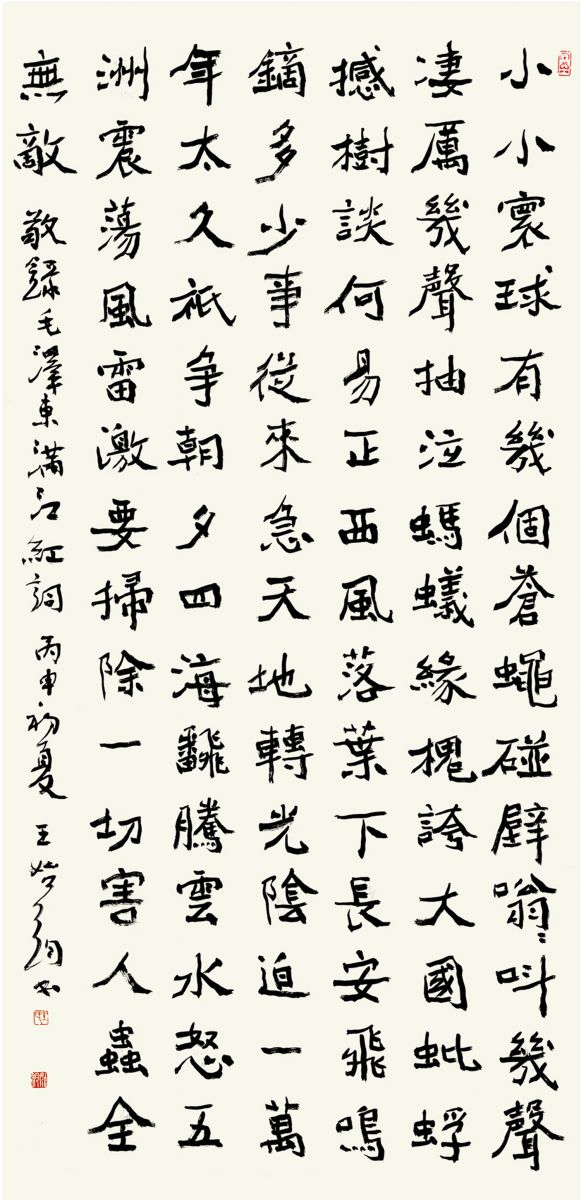 小小寰球有幾個蒼蠅碰壁嗡〻叫幾聲
凄厲幾聲抽泣螞蟻緣槐誇大國蚍蜉
撼樹談何易正西風落葉下長安飛鳴
鏑多少事從來急天地轉光陰迫一萬
年太久祇争朝夕四海飜騰雲水怒五
洲震蕩風雷激要掃除一切害人蟲全
無敵 敬錄毛澤東滿江紅詞 丙申初夏 王